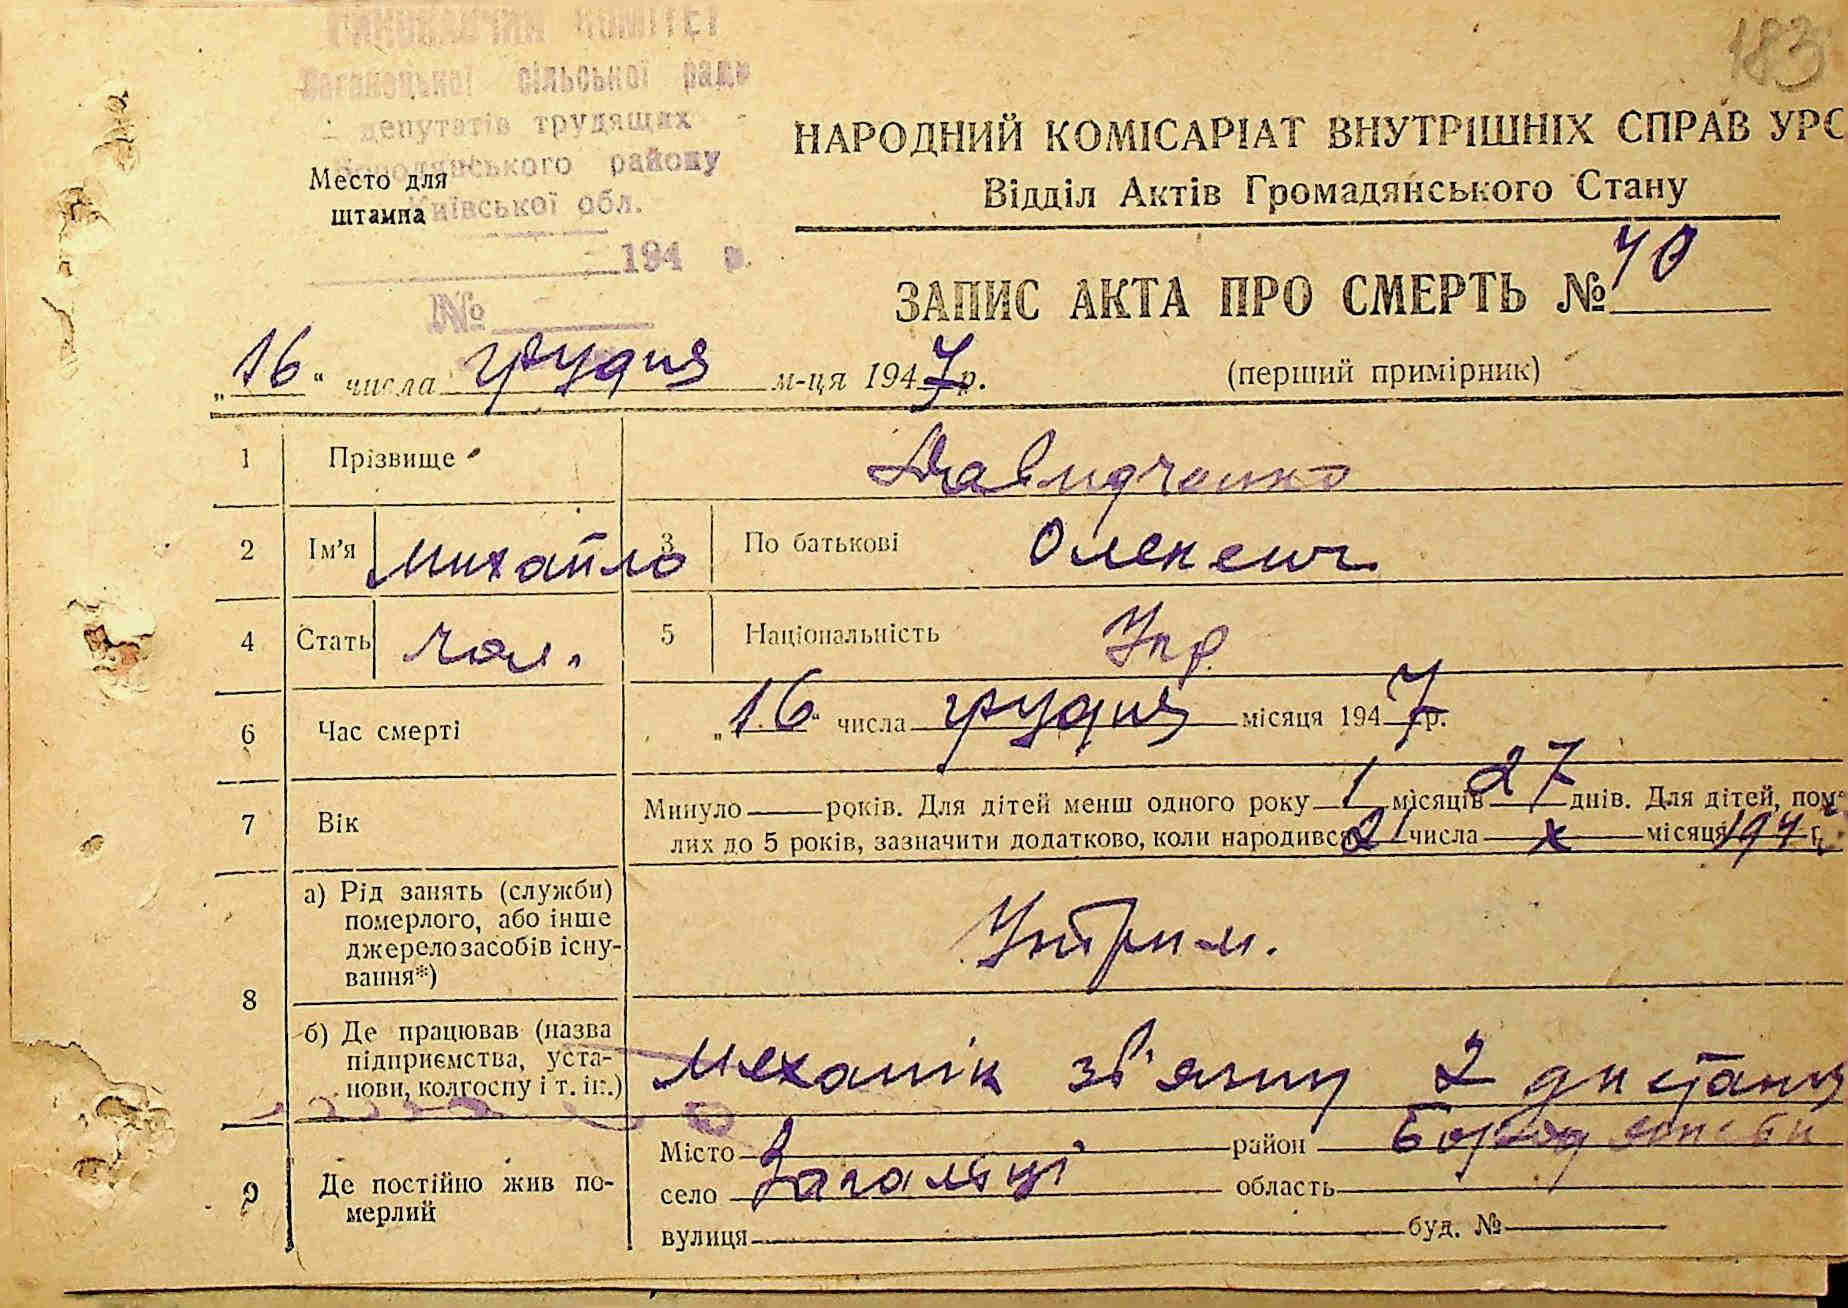 183
ВИКОНАВЧИЙ КОМІТЕТ
сільської ради
депутатів трудящих
Бородянського району
Київської обл.
194 р.
№
Место для
штампа
НАРОДНИЙ КОМІСАРІАТ ВНУТРІШНІХ СПРАВ УРС
Відділ Актів Громадянського Стану
ЗАПИС АКТА ПРО СМЕРТЬ № 70
„16“ числа грудня м-ця 1947р.
(перший примірник)
1 Прізвище Давидченко
2 Ім'я Михайло 3 По батькові Олексеич
4 Стать чол. 5 Національність Укр
6 Час смерті „16“ числа грудня місяця 1947р.
7 Вік Минуло — років. Для дітей менш одного року 1 місяців 27 днів. Для дітей, помер-
лих до 5 років, зазначити додатково, коли народився 21 числа х місяця 1947 г.
8 а) Рід занять (служби)
померлого, або інше
джерело засобів існу-
вання*)
Утрим.
б) Де працював (назва
підприємства, уста-
нови, колгоспу і т. ін.)
механік зв'язку 2 дистанц
9 Де постійно жив по-
мерлий
Місто район Бородянськи
село Загальці область
вулиця буд. №